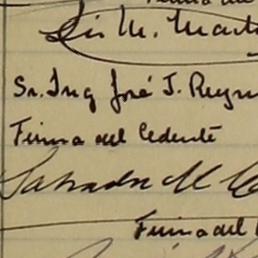 M. Mart
Sr. Ing José J. Reyn
Firma del Cedente
Salvador M
Firma del